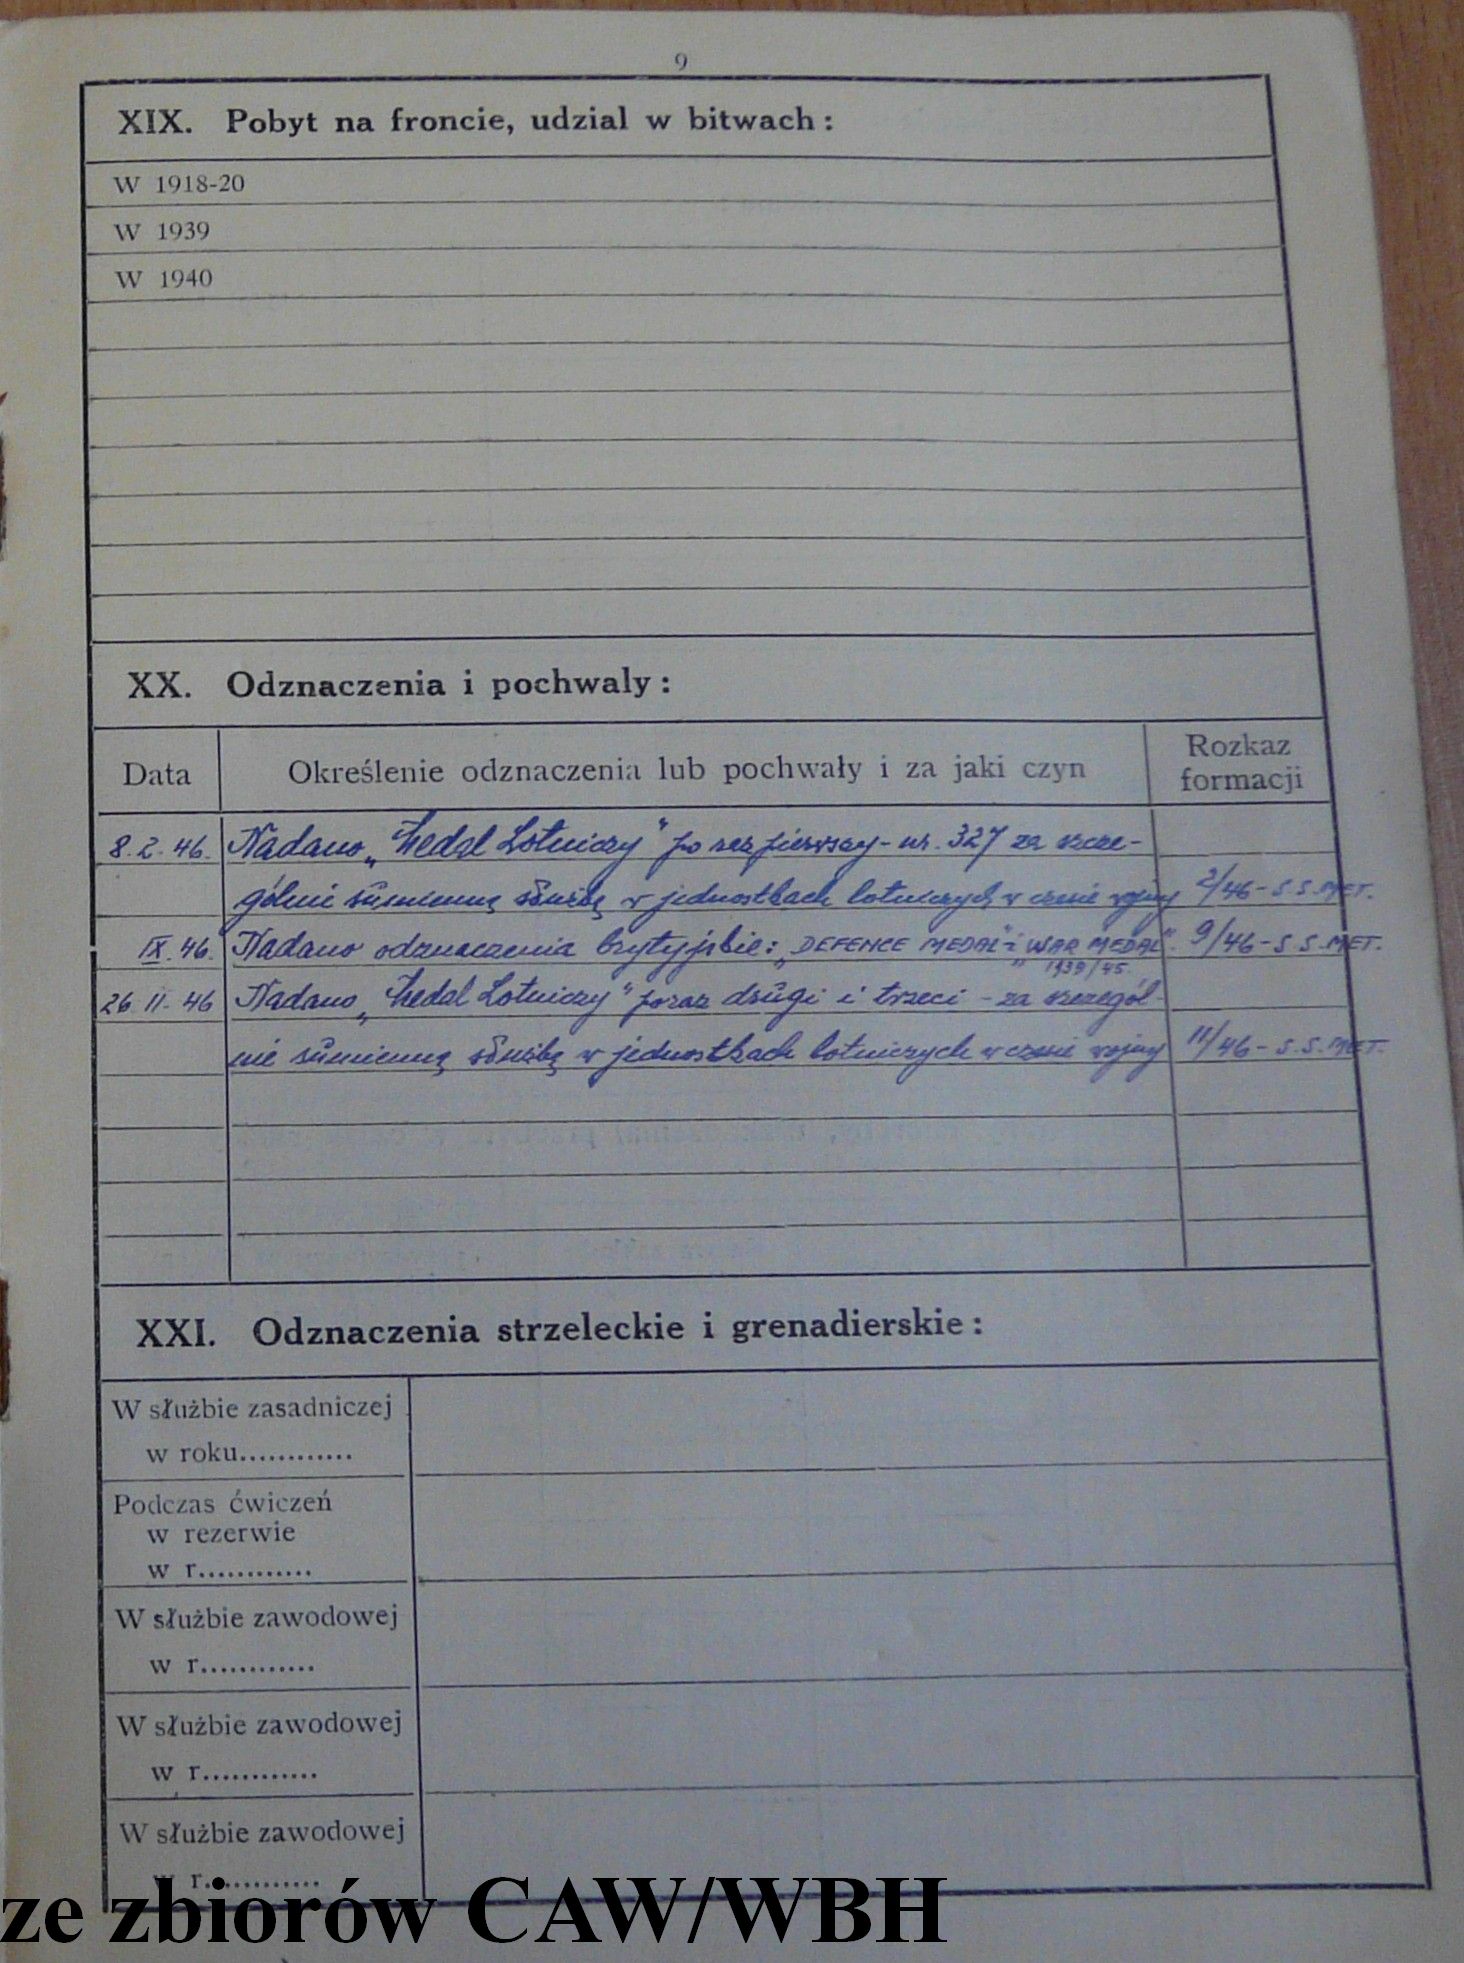 9
XIX. Pobyt na froncie, udzial w bitwach :
W 1918-20
W 1939
W 1940
XX. Odznaczenia i pochwaly :
Data Określenie odznaczenia lub pochwały i za jaki czyn Rozkaz formacji
8.2.46. Nadano „Medal Lotniczy" po raz pierwszy - nr. 327 za szcze-
gólnie sumienną służbę w jednostkach lotniczych w czasie wojny 2/46 - S.S.MET.
IX.46. Nadano odznaczenia brytyjskie: „DEFENCE MEDAL" i „WAR MEDAL". 9/46 - S.S.MET.
1939/45.
26.11.46 Nadano „Medal Lotniczy" po raz drugi i trzeci - za szczegól-
nie sumienną służbę w jednostkach lotniczych w czasie wojny 11/46 - S.S.MET.
XXI. Odznaczenia strzeleckie i grenadierskie :
W służbie zasadniczej
w roku............
Podczas ćwiczeń
w rezerwie
w r............
W służbie zawodowej
w r............
W służbie zawodowej
w r............
W służbie zawodowej
w r............
ze zbiorów CAW/WBH